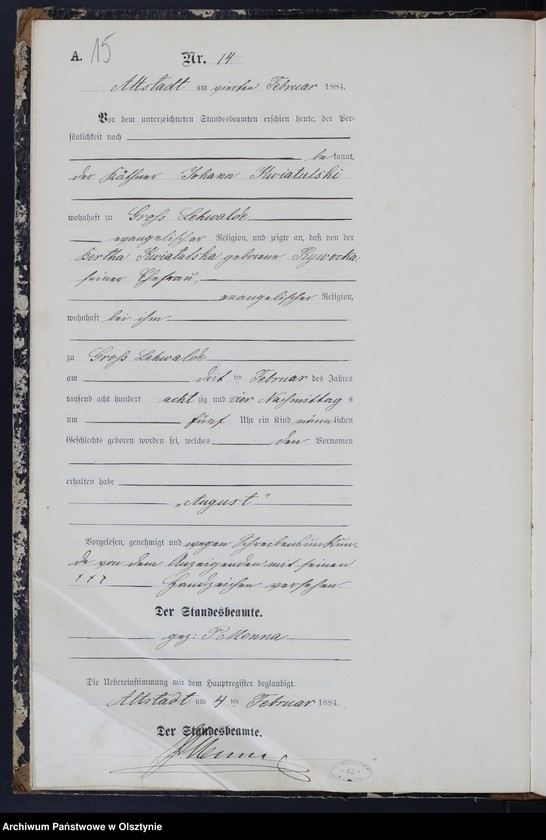 A. 15 Nr. 14
Altstadt am vierten Februar 1884.
Vor dem unterzeichneten Standesbeamten erschien heute, der Per-
sönlichkeit nach
be kannt,
der Käthner Johann Kwiatulski
wohnhaft zu Groß Lehwalde
evangelischer Religion, und zeigte an, daß von der
Bertha Kwiatulska geborene Rywocka
seiner Ehefrau,
evangelischer Religion,
wohnhaft bei ihm
zu Groß Lehwalde
am drit ten Februar des Jahres
tausend acht hundert acht zig und vier Nachmittag s
um fünf Uhr ein Kind männ lichen
Geschlechts geboren worden sei, welches den Vornamen
erhalten habe
„August"
Vorgelesen, genehmigt und wegen Schreibensunkun-
de von dem Anzeigenden mit seinen
+++ Handzeichen versehen.
Der Standesbeamte.
gez: P Menna
Die Uebereinstimmung mit dem Hauptregister beglaubigt.
Altstadt am 4 ten Februar 1884.
Der Standesbeamte.
PMenna
Archiwum Państwowe w Olsztynie